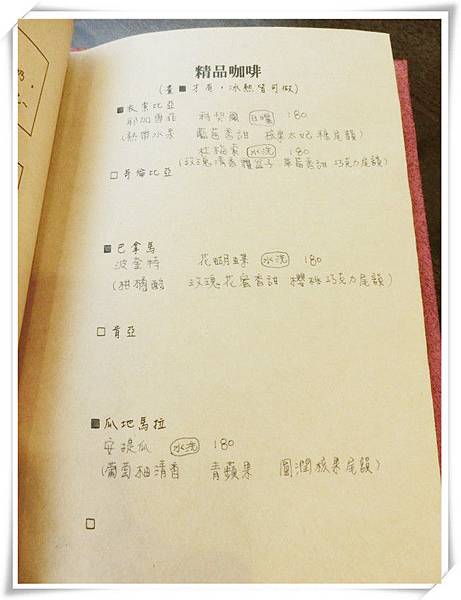 精品咖啡
(畫■才有,冰熱皆可做)
■衣索比亞
耶加雪菲 科契爾 日曬 180
(熱帶水果 藍莓香甜 核果太妃糖尾韻)
杜梅索 水洗 180
(玫瑰清香 覆盆子 草莓香甜 巧克力尾韻)
□哥倫比亞
■巴拿馬
波奎特 花蝴蝶 水洗 180
(柑橘酸 玫瑰花蜜香甜 櫻桃巧克力尾韻)
□肯亞
■瓜地馬拉
安提瓜 水洗 180
(葡萄柚清香 青蘋果 圓潤核果尾韻)
□